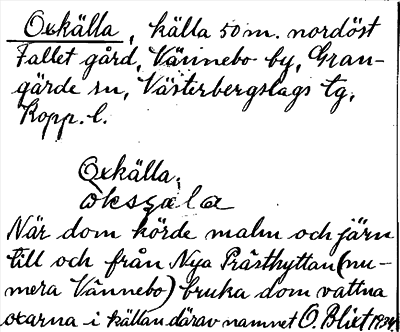 Oxkälla, källa 50 m. nordöst
Fallet gård, Vännebo by, Gran-
gärde sn, Västerbergslags tg,
Kopp. l.
Oxkälla,
När dom körde malm och järn
till och från Nya Prästhyttan (nu-
mera Vännebo) bruka dom vattna
oxarna i källan därav namnet O Blixt